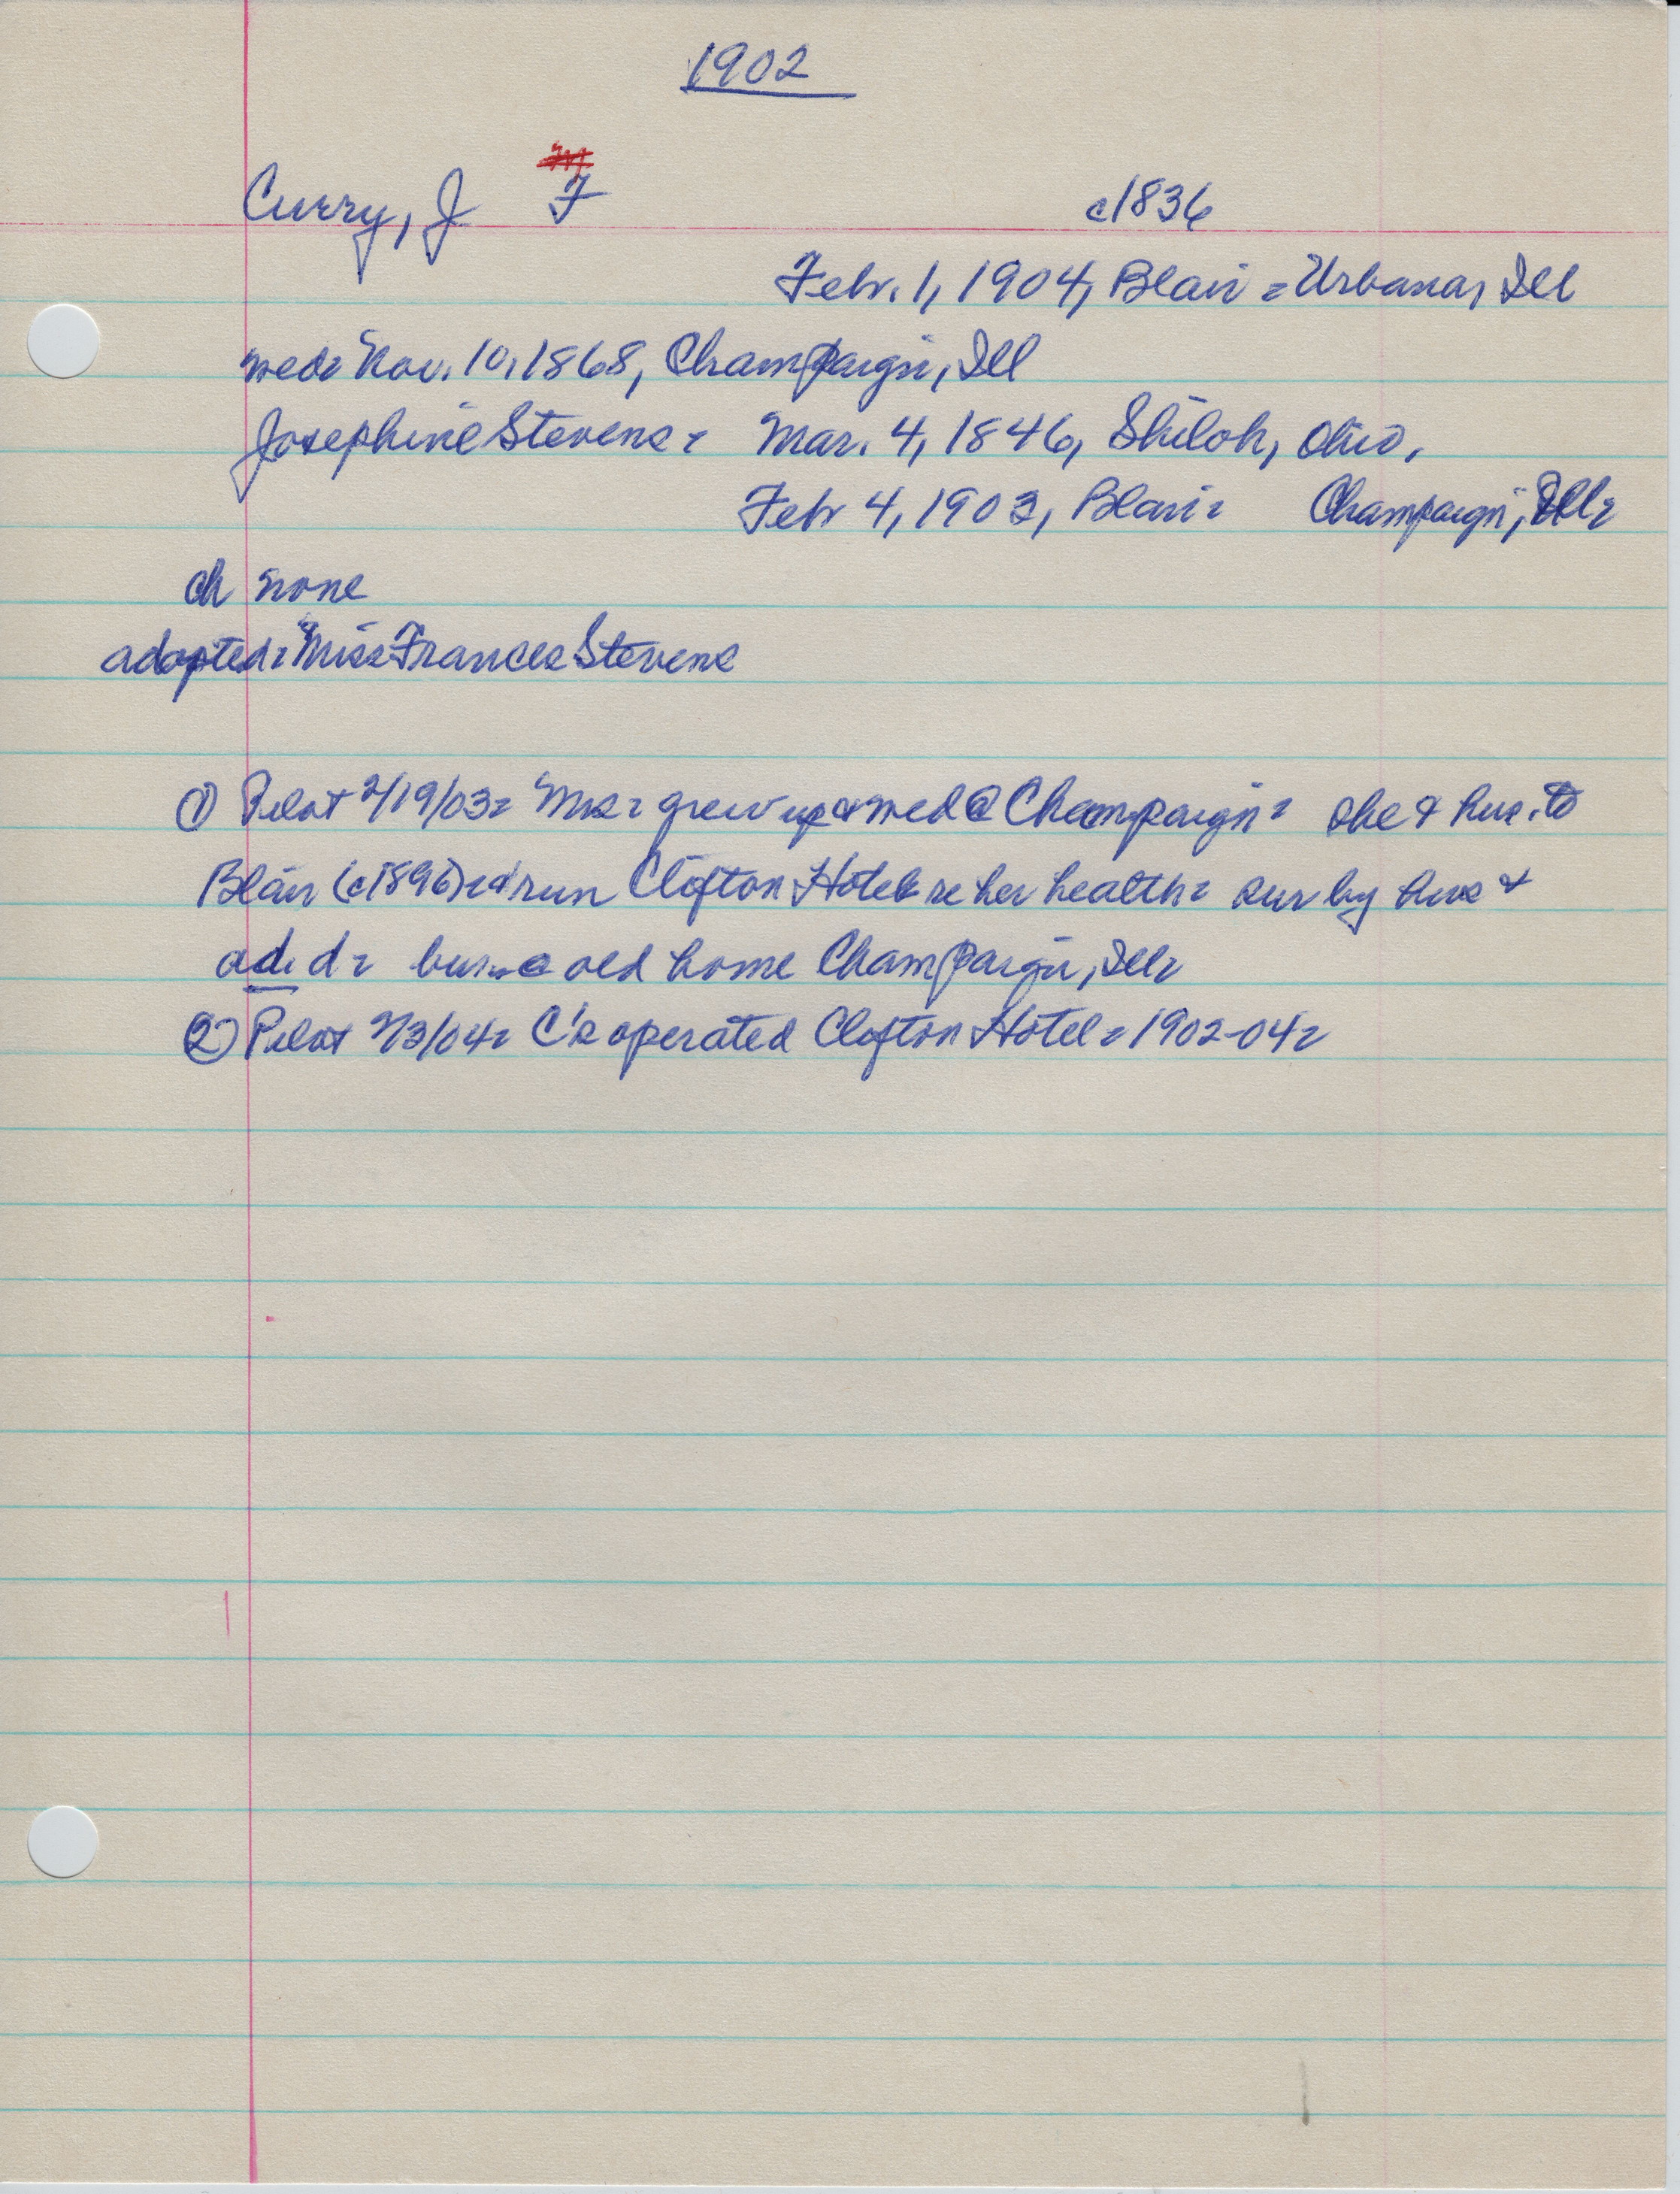 1902
Curry, J F c1836
Feb. 1, 1904, Blair = Urbana, Ill
wed= Nov. 10, 1868, Champaign, Ill
Josephine Stevens = Mar. 4, 1846, Shiloh, Ohio,
Feb 4, 1903, Blair = Champaign, Ill=
ch none
adopted= Miss Frances Stevens
① Pilot 2/19/03= Mrs= grew up & wed @ Champaign= she & hus. to
Blair (c1896)= run Clifton Hotel= re her health= sur by hus &
ad. d= bur @ old home Champaign, Ill=
② Pilot 2/3/04= C's operated Clifton Hotel= 1902-04=